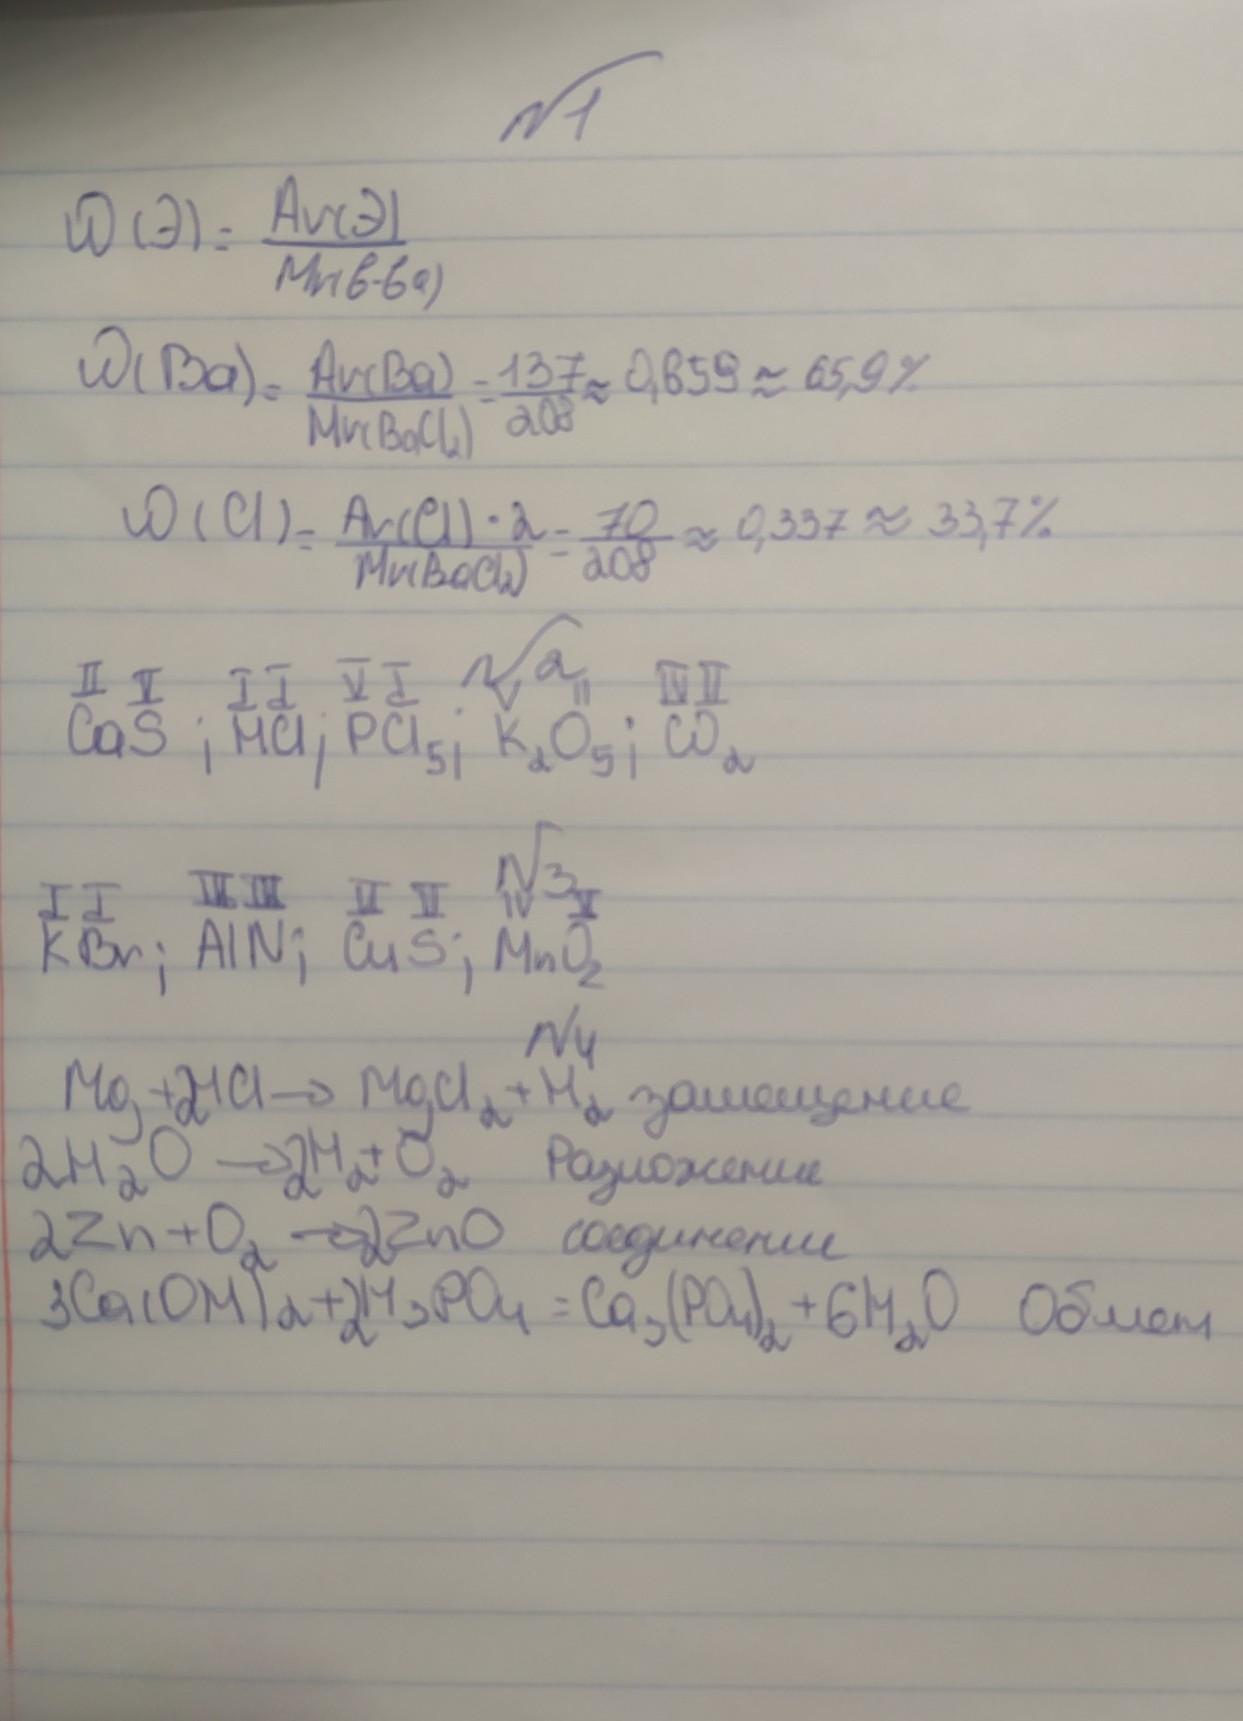 №1
ω(Э) = Ar(Э) / Mr(в-ва)
ω(Ba) = Ar(Ba) / Mr(BaCl₂) = 137 / 208 ≈ 0,659 ≈ 65,9%
ω(Cl) = Ar(Cl)·2 / Mr(BaCl₂) = 70 / 208 ≈ 0,337 ≈ 33,7%
№2
II II I I V I V II IV II
CaS ; HCl ; PCl₅ ; K₂O₅ ; CO₂
№3
I I III III II II IV II
KBr ; AlN ; CuS ; MnO₂
№4
Mg + 2HCl → MgCl₂ + H₂ замещение
2H₂O → 2H₂ + O₂ Разложение
2Zn + O₂ → 2ZnO соединение
3Ca(OH)₂ + 2H₃PO₄ = Ca₃(PO₄)₂ + 6H₂O Обмен